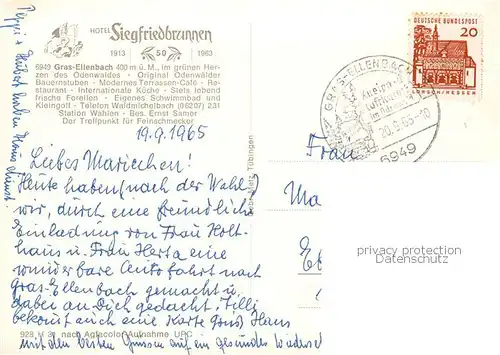 HOTEL Siegfriedbrunnen
1913 50 1963
6949 Gras-Ellenbach 400 m ü. M., im grünen Her-
zen des Odenwaldes · Original Odenwälder
Bauernstuben · Modernes Terrassen-Café · Re-
staurant · Internationale Küche · Stets lebend
frische Forellen · Eigenes Schwimmbad und
Kleingolf · Telefon Waldmichelbach (06207) 231
Station Wahlen · Bes. Ernst Samer
Der Treffpunkt für Feinschmecker
19.9.1965
Liebes Mariechen!
Heute haben (nach der Wahl)
wir, durch eine freundliche
Einladung von Frau Holt-
haus u. Frau Herta eine
wunderbare Autofahrt nach
Gras-Ellenbach gemacht u.
dabei an Dich gedacht. Tilli
bekommt auch eine Karte Gruß Hans
928 nach Agfacolor-Aufnahme
mit den besten Grüssen auf ein gesundes
Peppi + Hubert haben Haus dienst.
Gebr. Metz, Tübingen
DEUTSCHE BUNDESPOST
20
LORSCH/HESSEN
GRAS-ELLENBACH
Kneipp-
Luftkurort
im Odenwald
20.9.65-10
6949
Frau
Ma
privacy protection
AnsichtskartenCenter